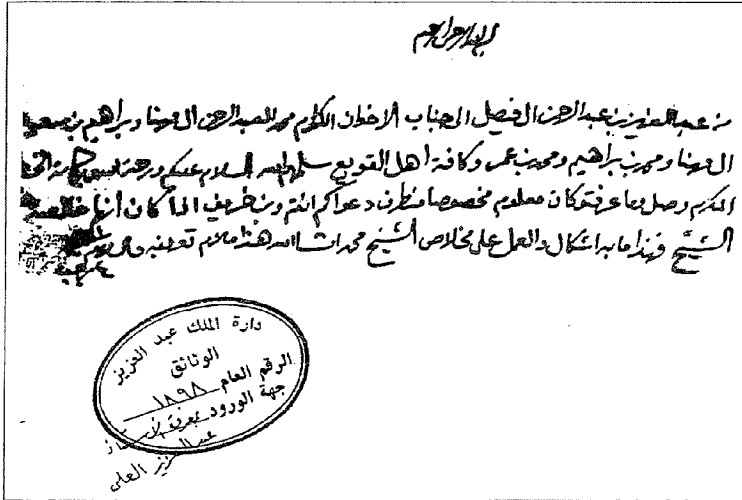 بسم الله الرحمن الرحيم
من عبد العزيز بن عبد الرحمن ال فيصل الى جناب الاخوان الكرام محمد العبد الرحمن ال مهنا وبراهيم بن
ال مهنا ومحمد بن براهيم ومحمد بن عمر وكافة اهل القويع سلمهم الله السلام عليكم ورحمة الله
المكرم وصل وما عرفتو كان معلوم مخصوصا من طرف دعواكم انتم وبن خريف اذا كان
الشيخ فهذا ما به اشكال والعمل على خلاص الشيخ محمد انشاالله هذا ما لزم تعريفه والسلام
دارة الملك عبد العزيز
الوثائق
الرقم العام ١٨٩٨
جهة الورود
عبد العزيز العلي